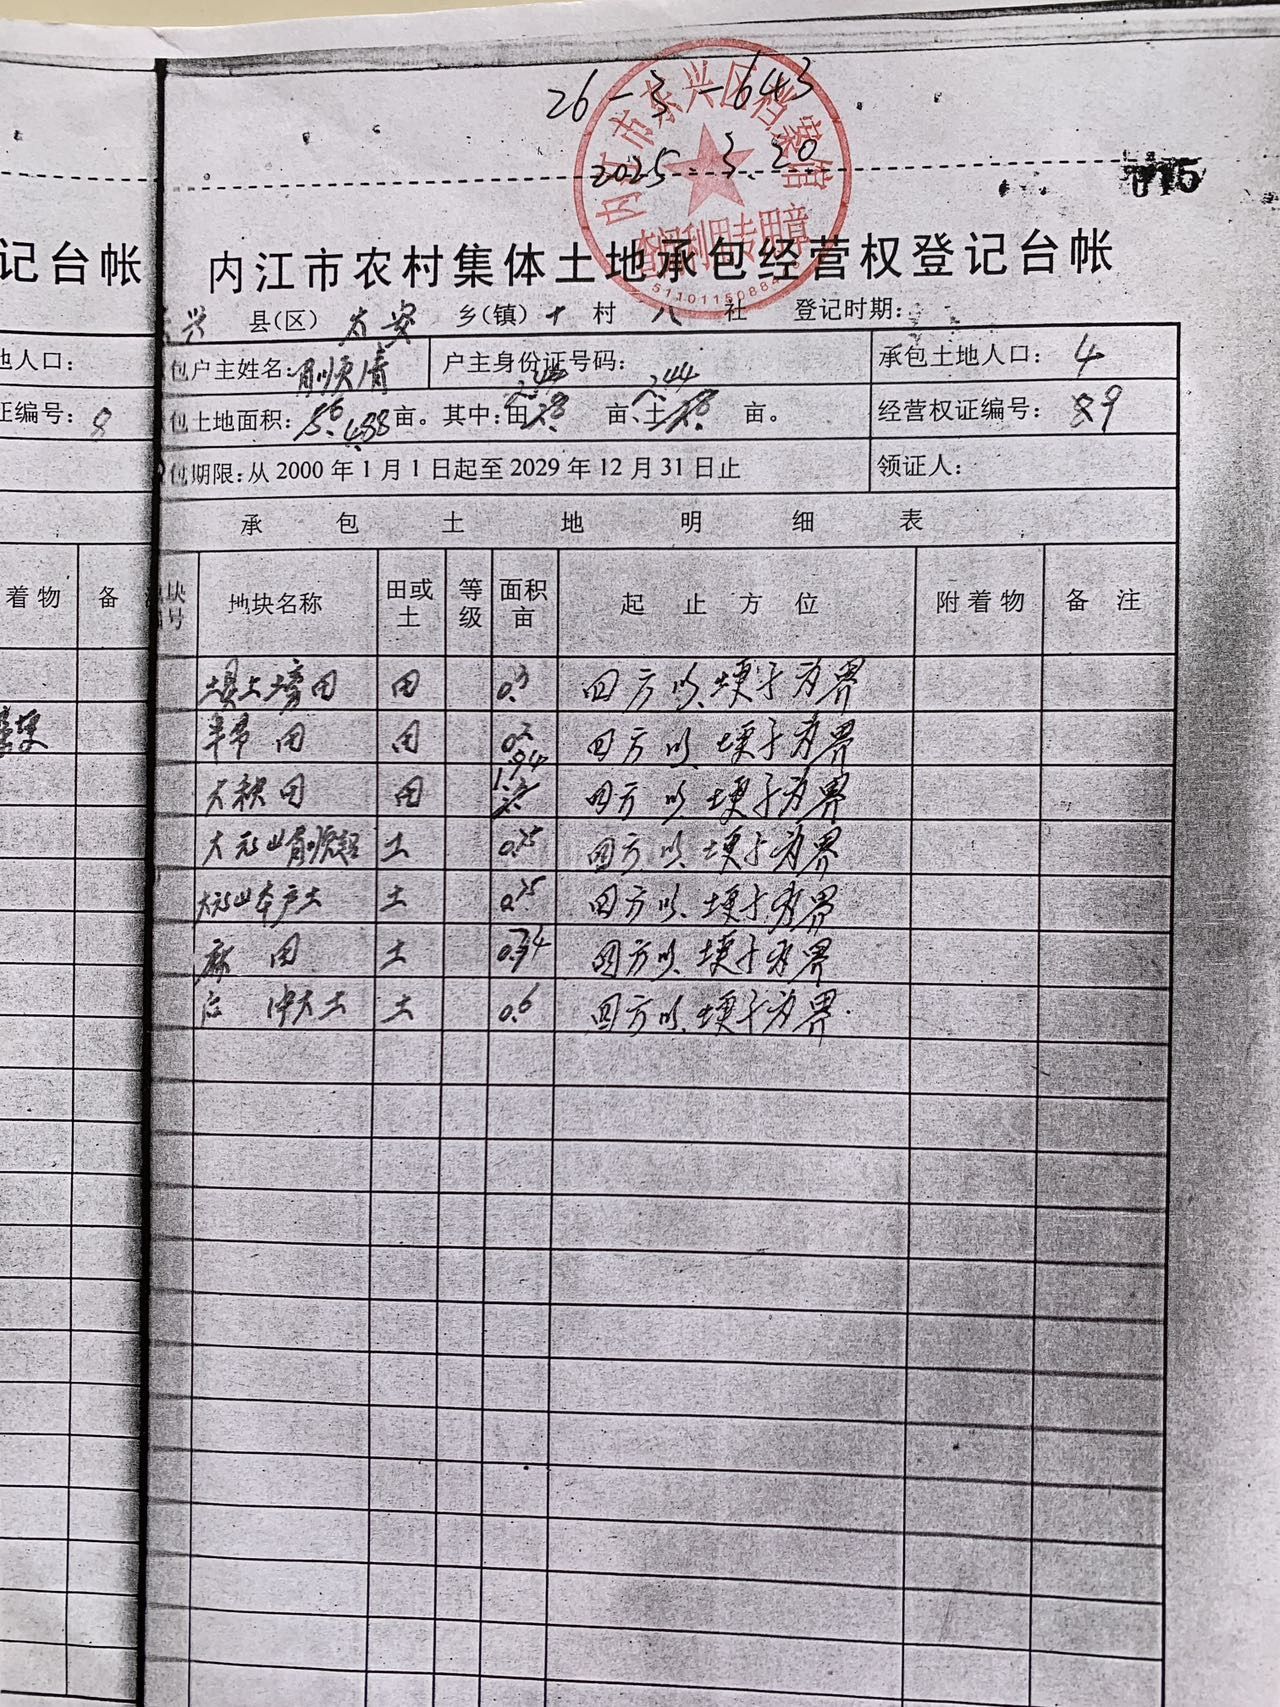 26-3-643
内江市东兴区档案馆
2025.3.20
查阅利用专用章
015
记台帐
内江市农村集体土地承包经营权登记台帐
兴 县(区) 太安 乡(镇) 十 村 八 社 登记时期:
地人口:
包户主姓名: 顺清 户主身份证号码: 承包土地人口: 4
证编号: 8
包土地面积: 亩。其中:田 2.44 亩、土 2.44 亩。 经营权证编号: 89
包期限:从 2000 年 1 月 1 日起至 2029 年 12 月 31 日止 领证人:
承包土地明细表
着物 备
块号 地块名称 田或土 等级 面积亩 起止方位 附着物 备注
田 田 0.3 四方以埂子为界
田 田 0.2 四方以埂子为界
大秧田 田 1.94 四方以埂子为界
土 0.75 四方以埂子为界
本户土 土 0.75 四方以埂子为界
麻田 土 0.34 四方以埂子为界
冲大土 土 0.6 四方以埂子为界